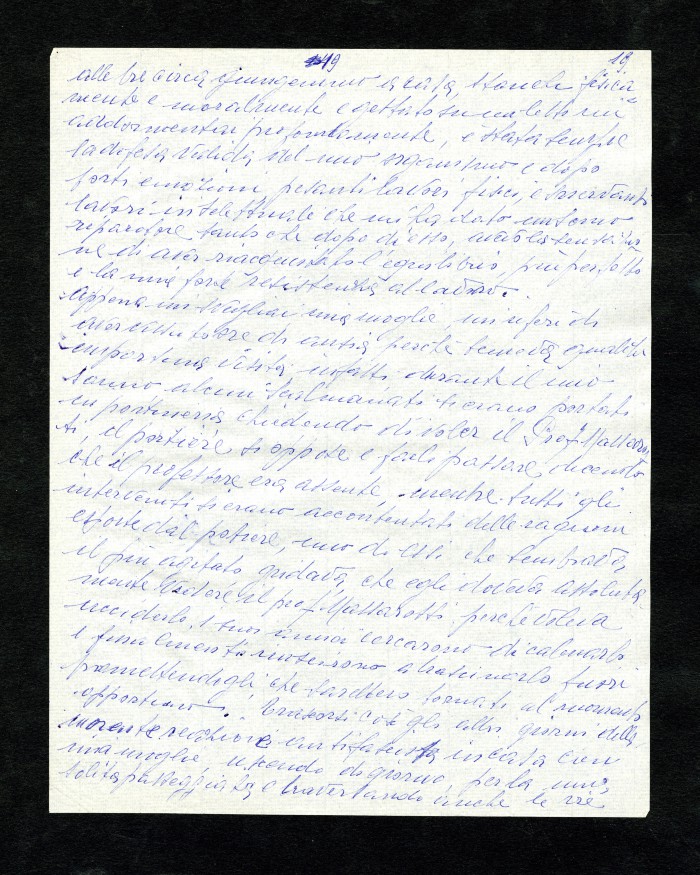 19 19.
alle tre circa giungemmo a casa, stanchi fisica
mente e moralmente e gettato su un letto mi
addormentai profondamente, è stata sempre
la difesa valida del mio organismo e dopo
forti emozioni, pesanti lavori fisici, e snervanti
lavori intellettuale che mi ha dato un sonno
riparatore tanto che dopo di esso, avevo la sensazio
ne di aver riacquistato l'equilibrio più perfetto
e la mia forte resistenza al lavoro.
Appena mi svegliai mia moglie, mi riferì di
aver vissuto ore di ansia perchè temeva qualche
importuna visita infatti durante il mio
sonno alcuni scalmanati si erano portati
in portineria chiedendo di voler il Prof. Mattarot
ti, il portiere si oppose a farli passare, dicendo
che il professore era assente, mentre tutti gli
intervenuti si erano accontentati delle ragioni
esposte dal portiere, uno di essi che sembrava
il più agitato gridava, che egli doveva assoluta-
mente vedere il prof. Mattarotti perchè voleva
ucciderlo, i suoi amici cercarono di calmarlo
e finalmente riuscirono a trascinarlo fuori
promettendogli, che sarebbero tornati al momento
opportuno. Trascorsi così gli altri giorni della
in casa con
mia moglie, uscendo di giorno, per la mia
solita passeggiata e traversando anche le vie